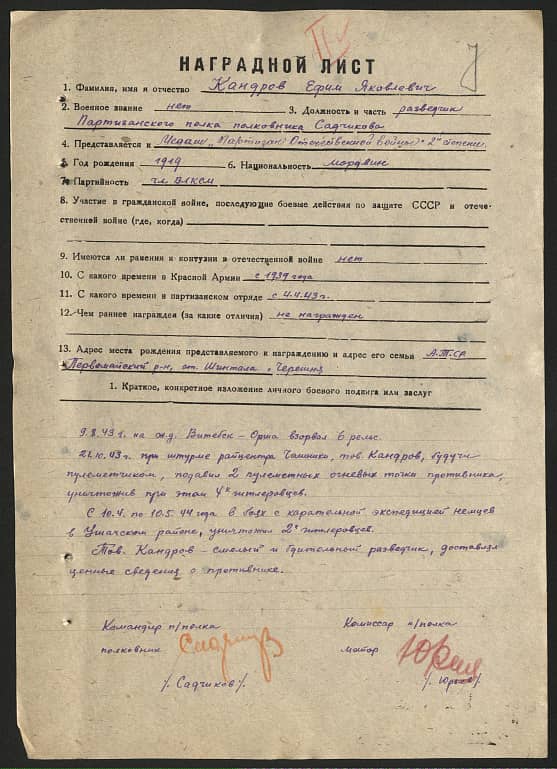 НАГРАДНОЙ ЛИСТ
1. Фамилия, имя и отчество Кандров Ефим Яковлевич
2. Военное звание нет 3. Должность и часть разведчик
Партизанского полка полковника Садчикова
4. Представляется к Медаль "Партизан Отечественной Войны" 2й степени.
5. Год рождения 1919 6. Национальность Мордвин
7. Партийность чл. ВЛКСМ
8. Участие в гражданской войне, последующие боевые действия по защите СССР и отече-
ственной войне (где, когда)
9. Имеются ли ранения и контузии в отечественной войне нет
10. С какого времени в Красной Армии с 1939 года
11. С какого времени в партизанском отряде с 4.4.43 г.
12. Чем раннее награжден (за какие отличия) не награжден
13. Адрес места рождения представляемого к награждению и адрес его семьи
Первомайский р-н, ст. Шинтала,
1. Краткое, конкретное изложение личного боевого подвига или заслуг
9.8.43 г. на ж.д. Витебск - Орша взорвал 6 рельс.
21.10.43 г. при штурме райцентра тов. Кандров, будучи
пулеметчиком, подавил 2 пулеметных огневых точки противника,
уничтожив при этом 4х гитлеровцев.
С 10.4. по 10.5.44 года в боях с карательной экспедицией немцев
в Ушачском районе, уничтожил 2х гитлеровцев.
Тов. Кандров - смелый и бдительный разведчик, доставлял
ценные сведения о противнике.
Командир п/полка Комиссар п/полка
полковник майор
/. Садчиков/.